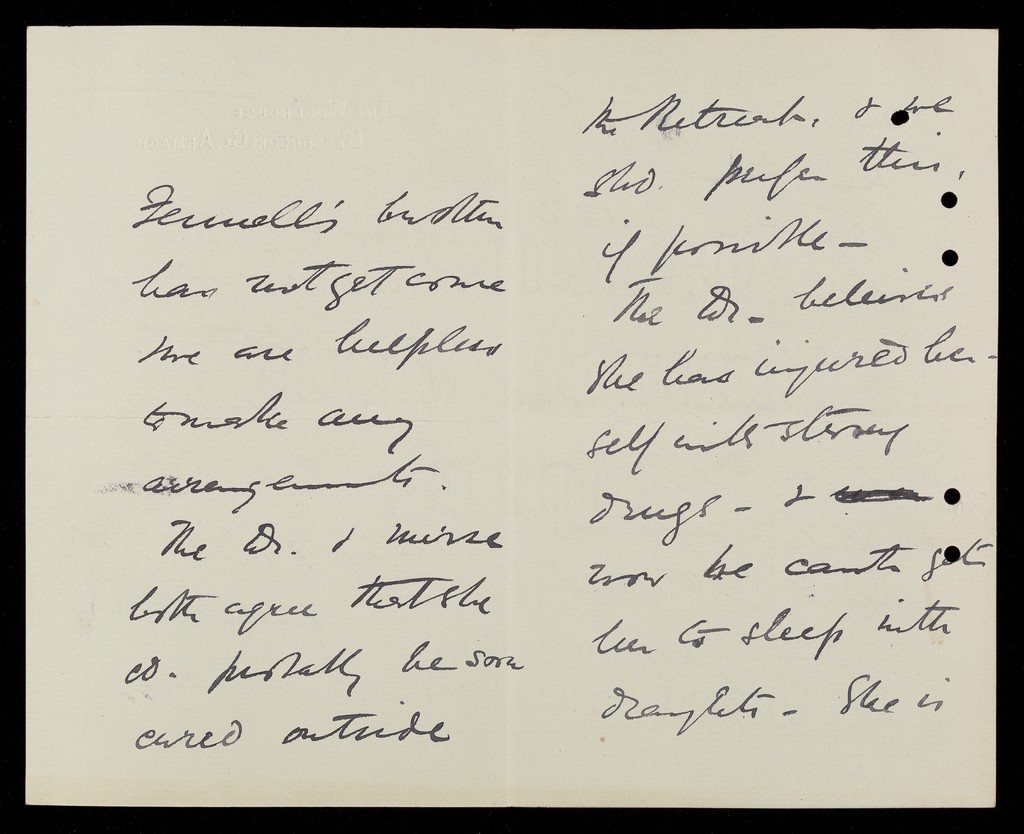 Fennell's brother
has not yet come
we are helpless
to make any
arrangements.
The Dr. & nurse
both agree that she
cd. probably be soon
cured outside
the Retreat, & we
shd. prefer this,
if possible –
The Dr. believes
she has injured her-
self with strong
drugs – &
now he can't get
her to sleep with
draughts – She is